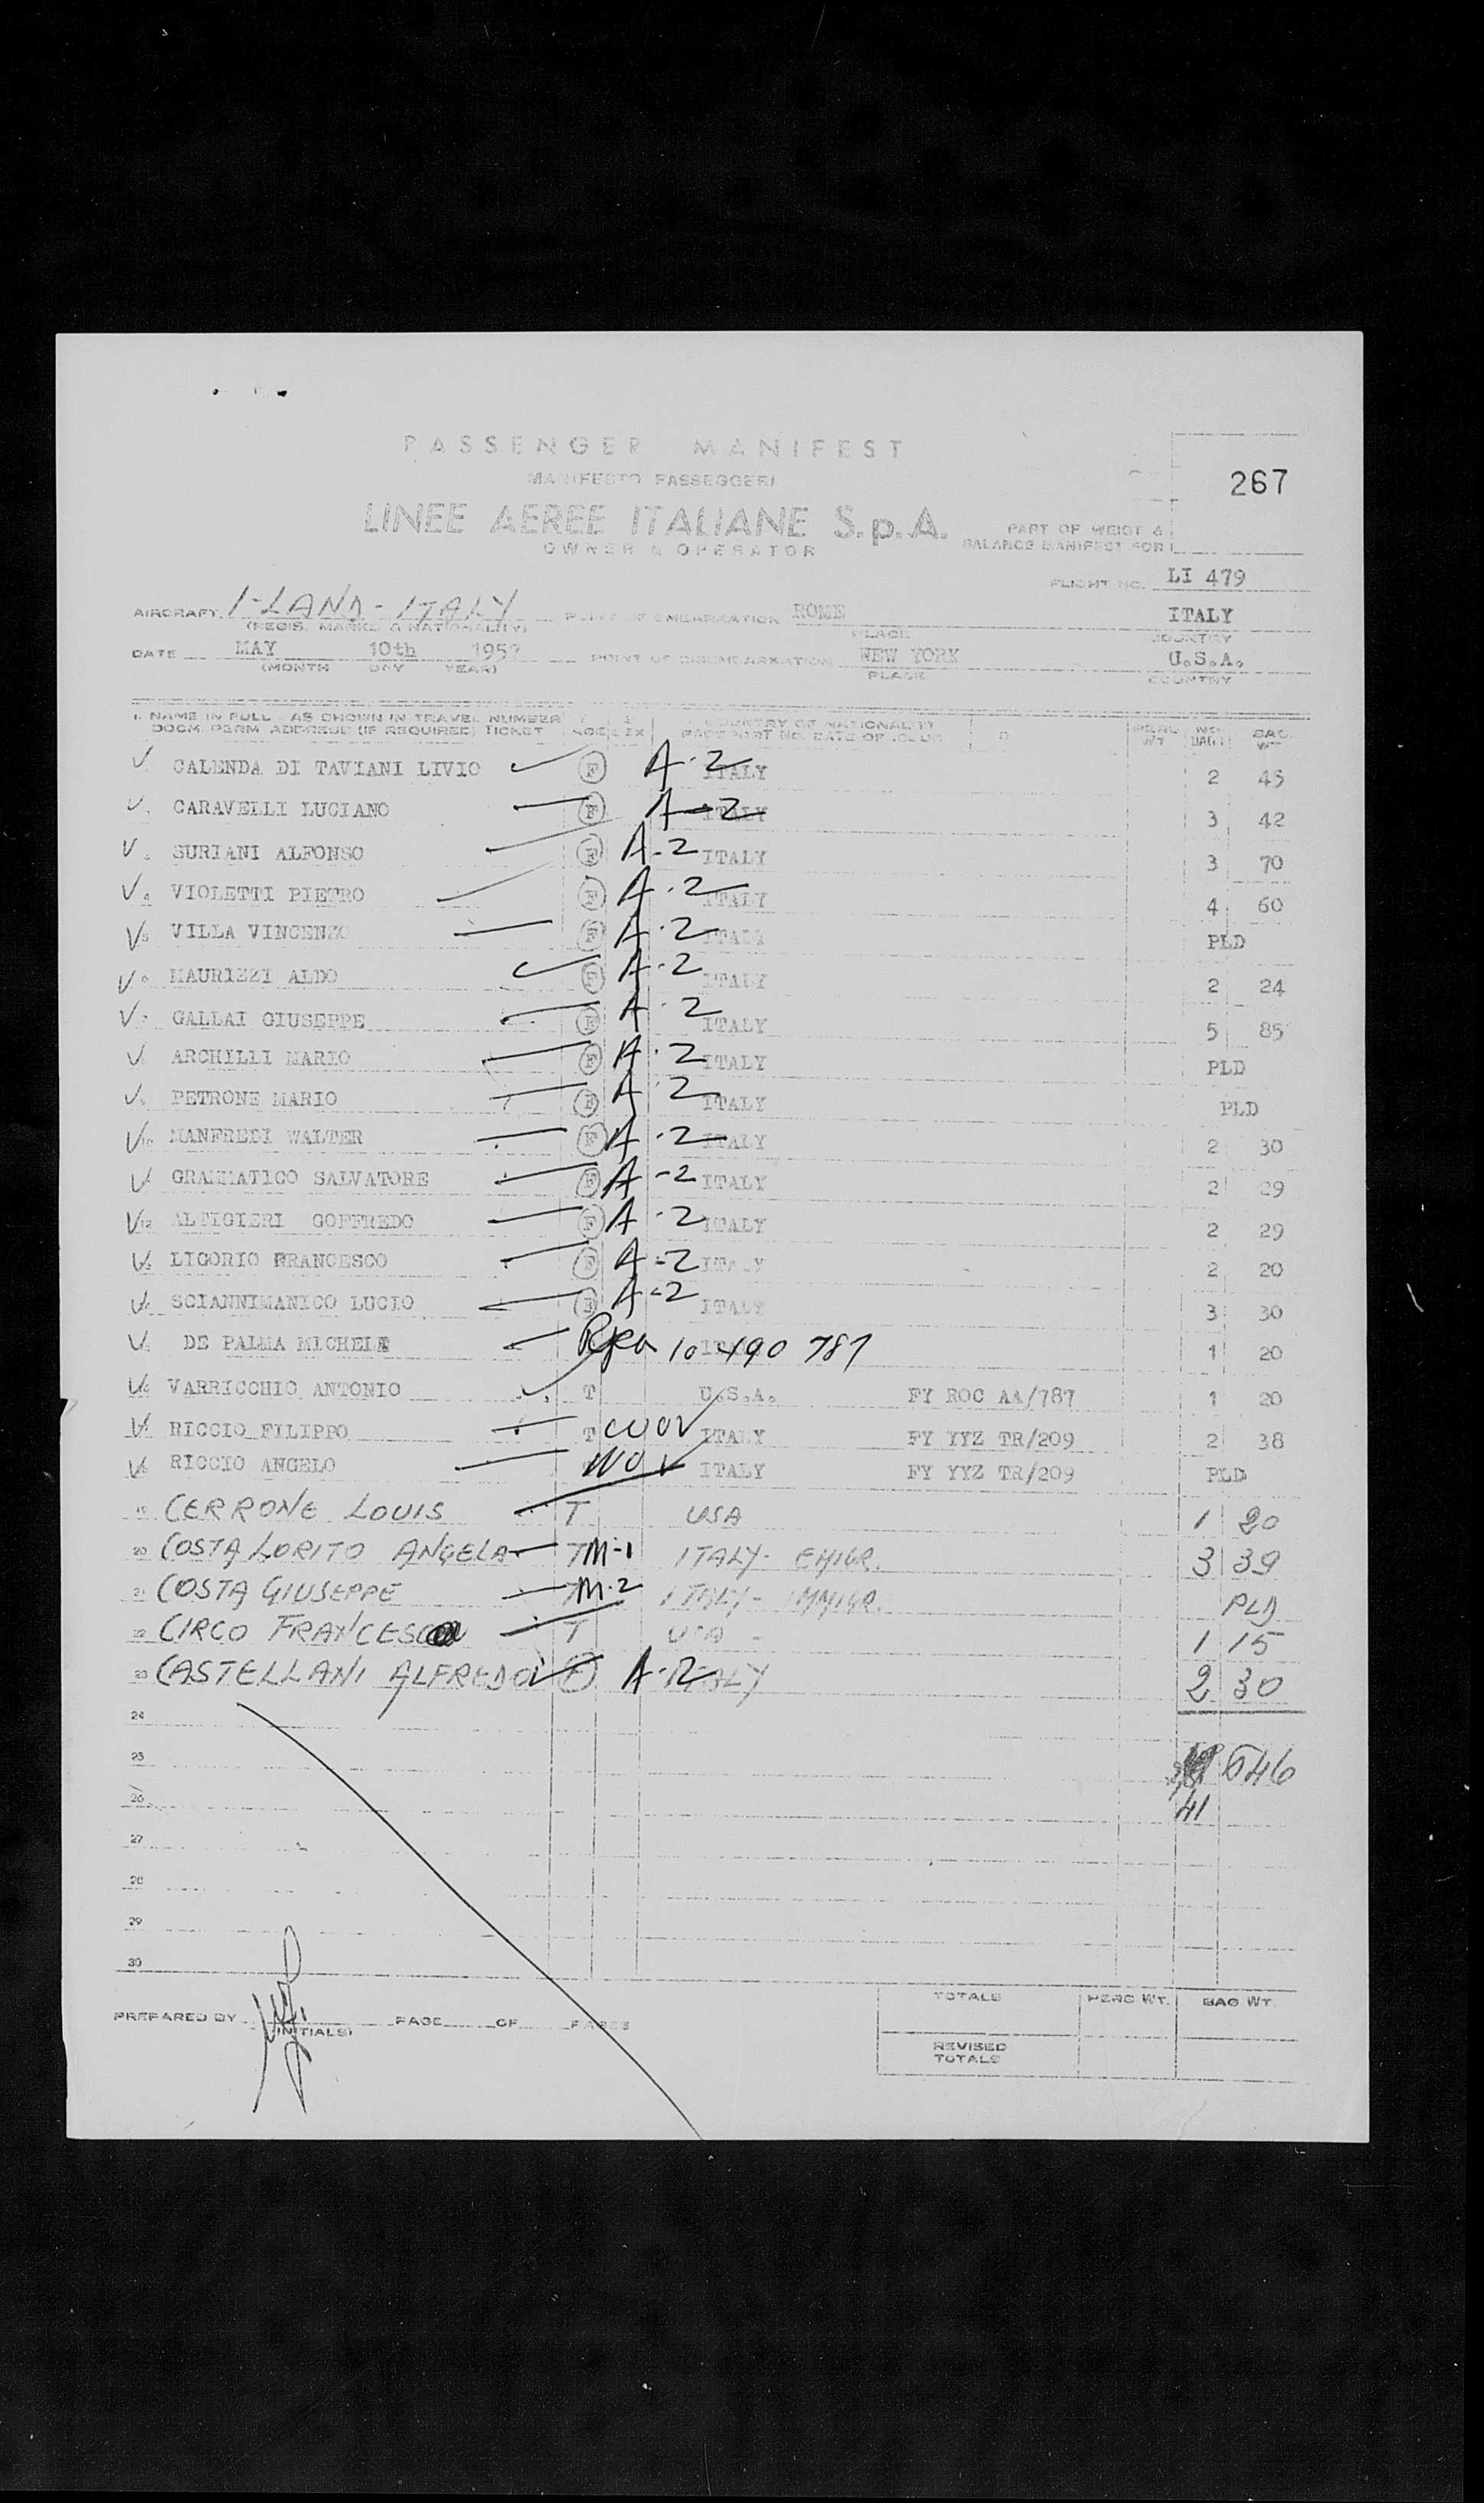 PASSENGER MANIFEST
MANIFESTO PASSEGGERI
267
LINEE AEREE ITALIANE S.p.A.
OWNER & OPERATOR
PART OF WEIGT &
BALANCE MANIFEST FOR
FLIGHT NO. LI 479
AIRCRAFT I-LAND-ITALY POINT OF EMBARKATION ROME ITALY
(REGIS. MARKS & NATIONALITY) PLACE COUNTRY
DATE MAY 10th 195 POINT OF DISEMBARKATION NEW YORK U.S.A.
(MONTH DAY YEAR) PLACE COUNTRY
1. NAME IN FULL AS SHOWN IN TRAVEL NUMBER COUNTRY OF NATIONALITY PERS NO. BAG
DOCM. PERM ADDRESS (IF REQUIRED) TICKET AGE SEX PASSPORT NO. DATE OF ISSUE WT BAGS WT
CALENDA DI TAVIANI LIVIO F A-2 ITALY 2 45
CARAVELLI LUCIANO F A-2 ITALY 3 42
SURIANI ALFONSO F A-2 ITALY 3 70
VIOLETTI PIETRO F A-2 ITALY 4 60
VILLA VINCENZO F A-2 ITALY PLD
MAURIZZI ALDO F A-2 ITALY 2 24
GALLAI GIUSEPPE F A-2 ITALY 5 85
ARCHILLI MARIO F A-2 ITALY PLD
PETRONE MARIO F A-2 ITALY PLD
10 MANFREDI WALTER F A-2 ITALY 2 30
GRAMMATICO SALVATORE F A-2 ITALY 2 29
12 ALTIGIERI GOFFREDO F A-2 ITALY 2 29
LIGORIO FRANCESCO F A-2 ITALY 2 20
SCIANNIMANICO LUCIO F A-2 ITALY 3 30
DE PALMA MICHELE 10 490 787 1 20
VARRICCHIO ANTONIO T U.S.A. FY ROC AA/787 1 20
RICCIO FILIPPO T WOV ITALY FY YYZ TR/209 2 38
RICCIO ANGELO WOV ITALY FY YYZ TR/209 PLD
19 CERRONE LOUIS T USA 1 20
20 COSTA LORITO ANGELA T M-1 ITALY- EMIGR. 3 39
21 COSTA GIUSEPPE T M-2 ITALY- IMMIGR. PLD
22 CIRCO FRANCESCA T USA - 1 15
23 CASTELLANI ALFREDO F A-2 ITALY 2 30
24
25 646
26 41
27
28
29
30
TOTALS PERS WT. BAG WT.
PREPARED BY (INITIALS) PAGE OF PAGES
REVISED
TOTALS